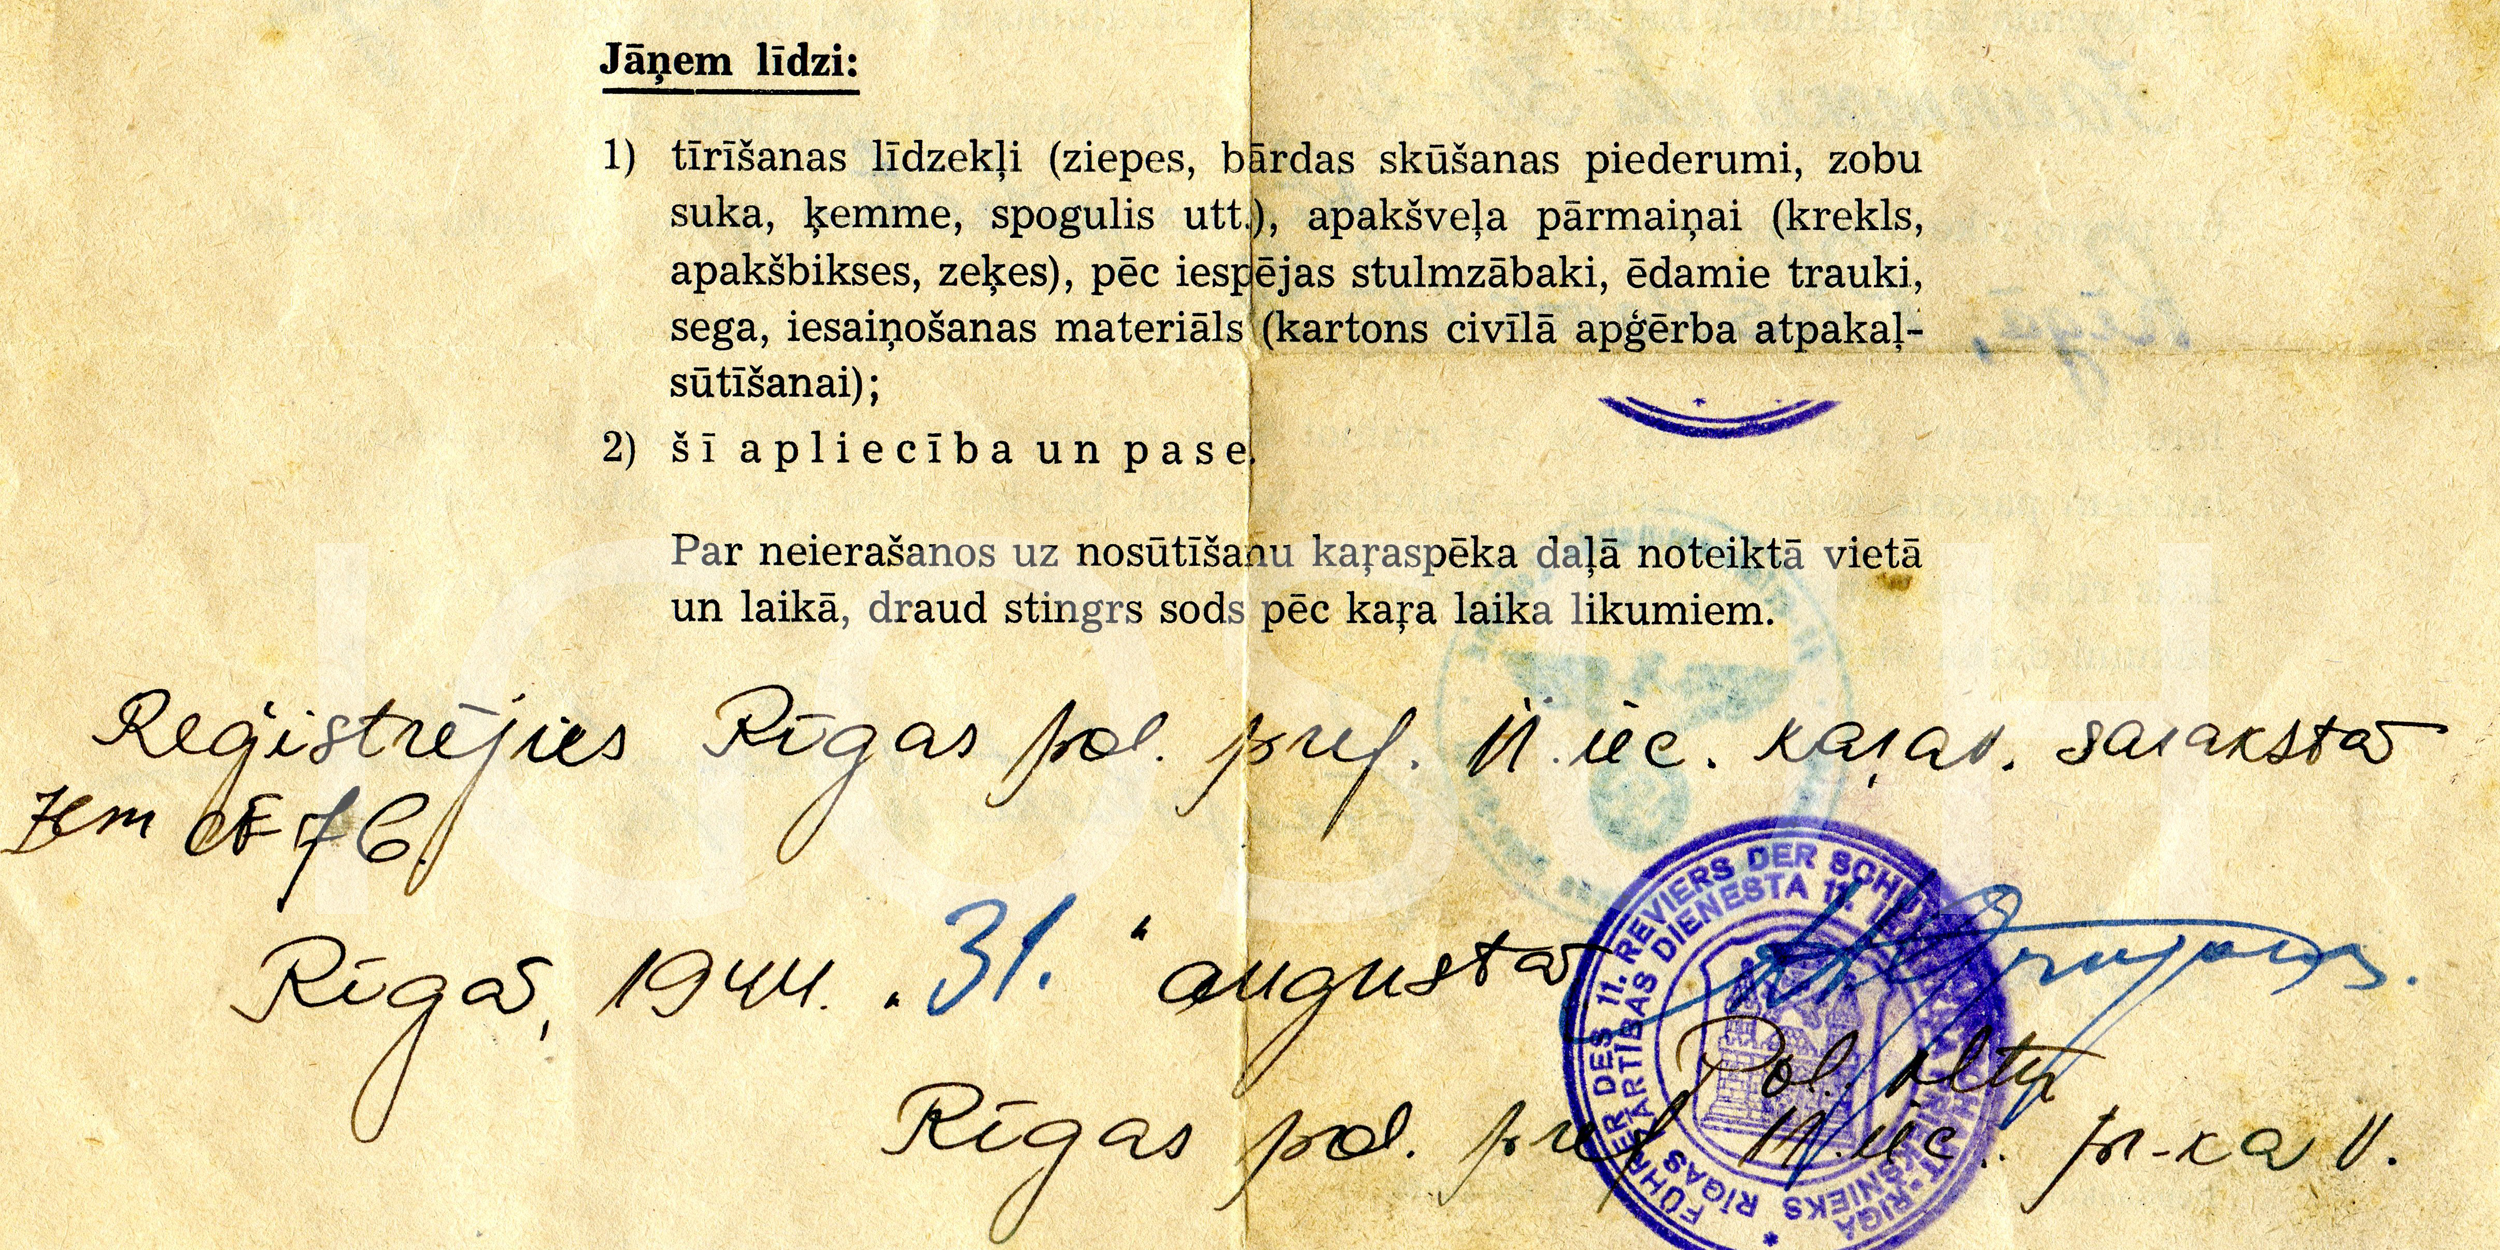 Jāņem līdzi:
1) tīrīšanas līdzekļi (ziepes, bārdas skūšanas piederumi, zobu
suka, ķemme, spogulis utt.), apakšveļa pārmaiņai (krekls,
apakšbikses, zeķes), pēc iespējas stulmzābaki, ēdamie trauki,
sega, iesaiņošanas materiāls (kartons civīlā apģērba atpakaļ-
sūtīšanai);
2) šī apliecība un pase.
Par neierašanos uz nosūtīšanu kaŗaspēka daļā noteiktā vietā
un laikā, draud stingrs sods pēc kaŗa laika likumiem.
Reģistrējies Rīgas pol. pref. 11. iec. kaŗav. sarakstā
zem № 76.
Rīgā, 1944. "31." augustā
Pol.
Rīgas pol. pref. 11. iec. pr-ka v.
FÜHRER DES 11. REVIERS DER
RĪGAS KĀRTĪBAS DIENESTA 11. PRIEKŠNIEKS RĪGĀ